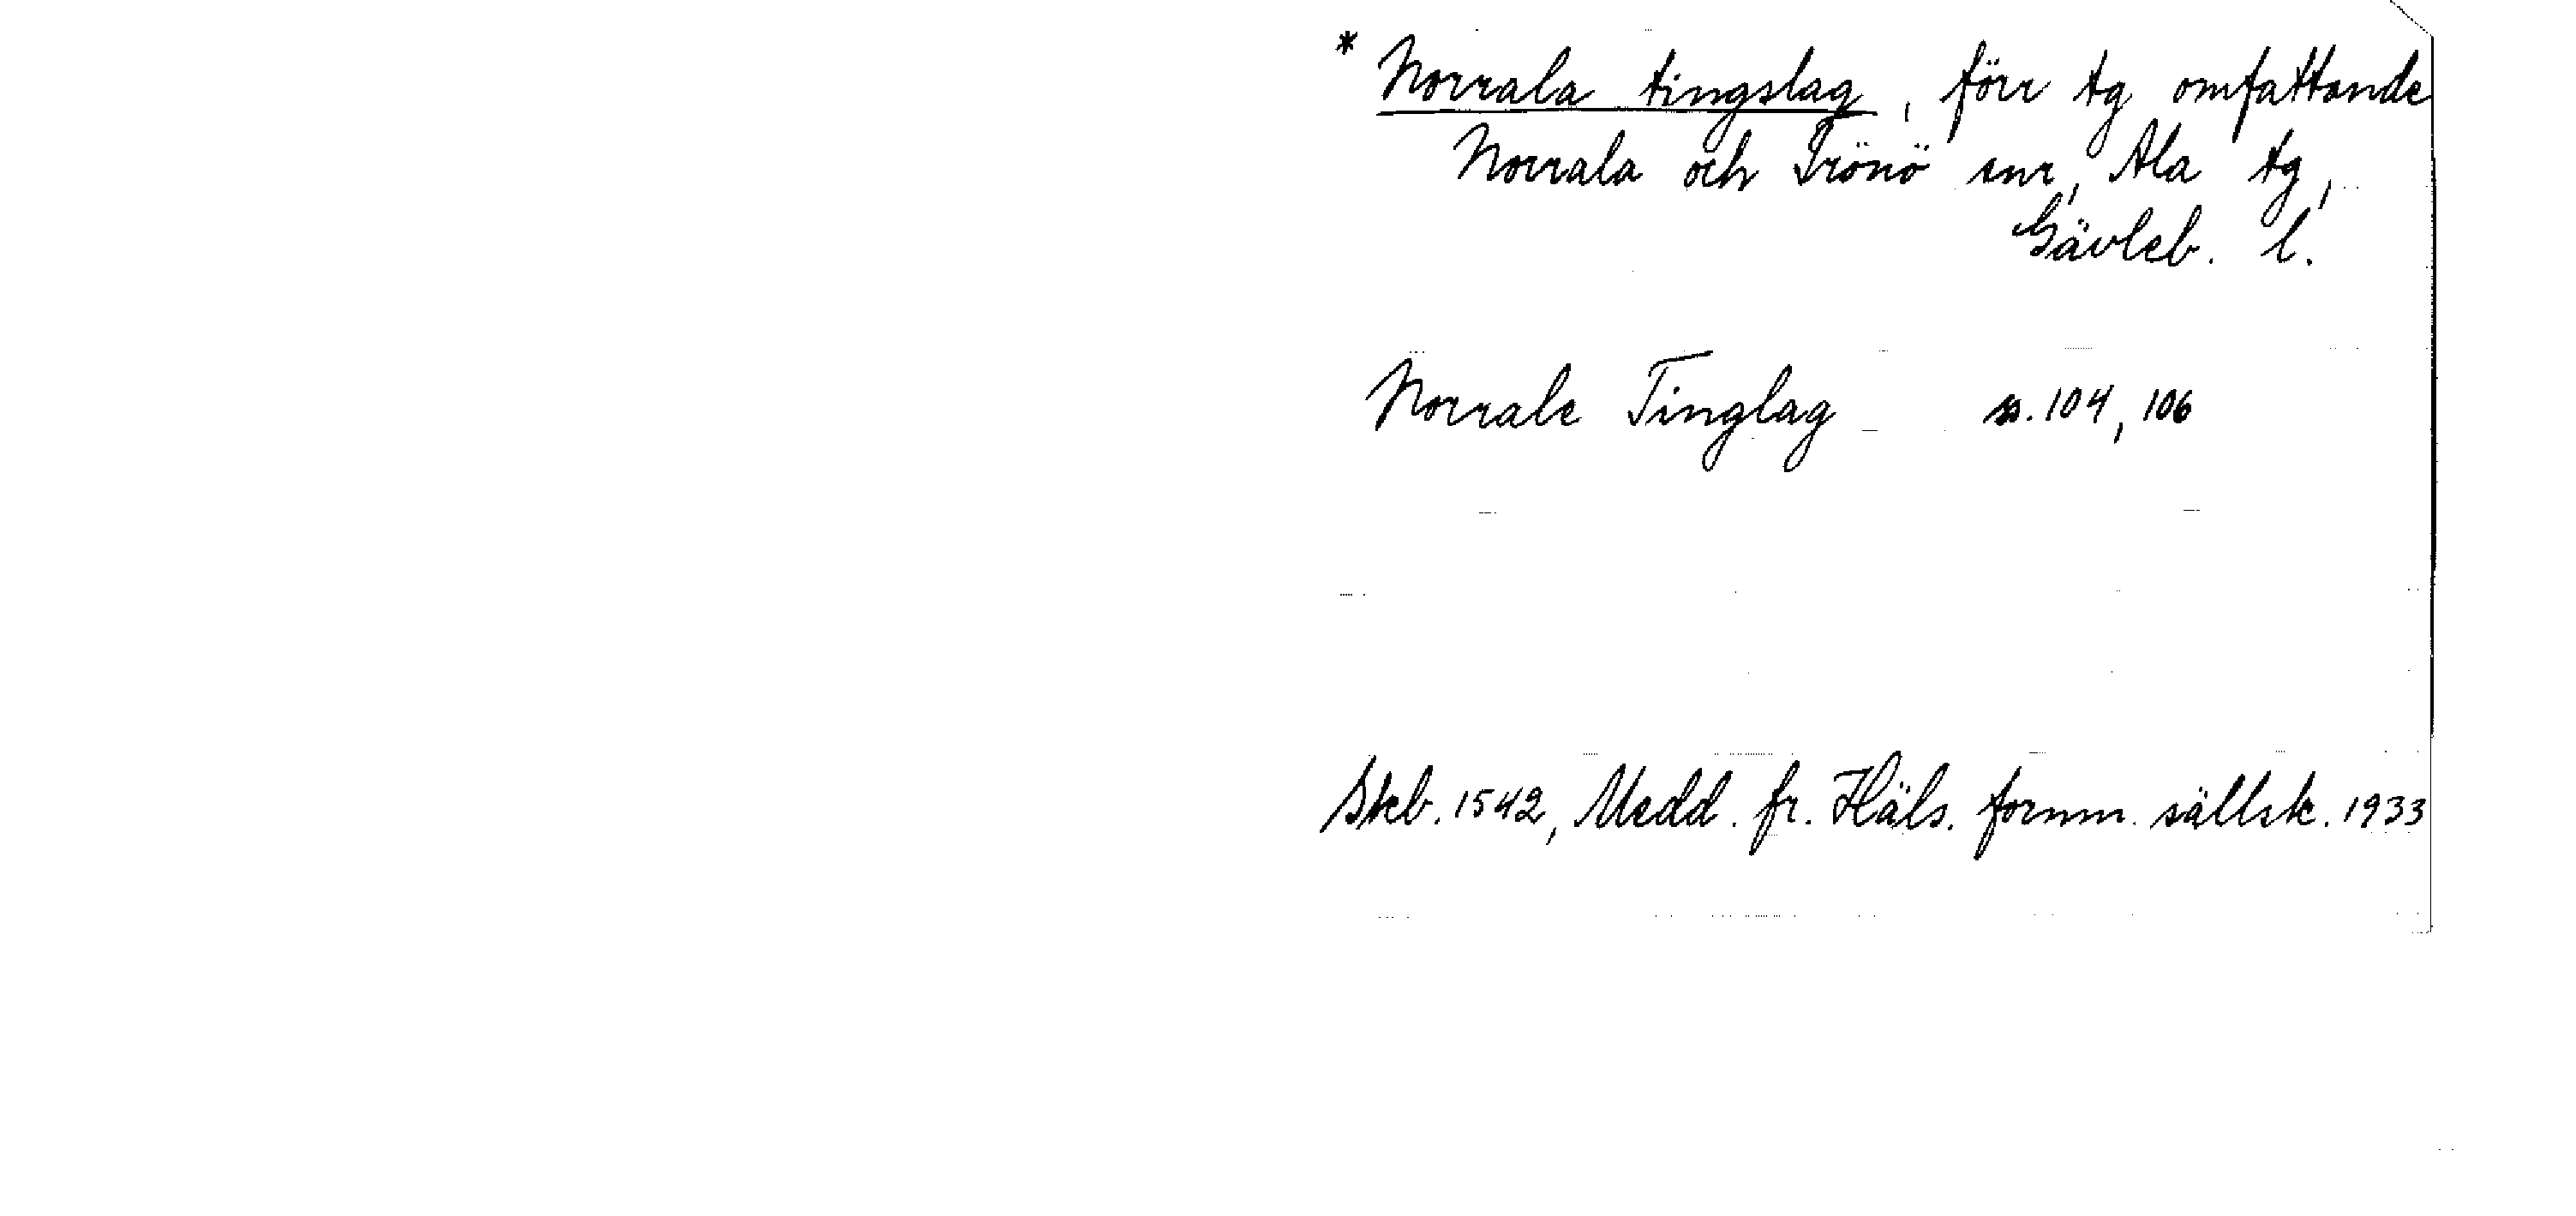 * Norrala tingslag, förr tg omfattande
Norrala och Trönö snr, Ala tg,
Gävleb. l.
Norrale Tinglag s. 104, 106
Skb. 1542, Medd. fr. Häls. fornm. sällsk. 1933